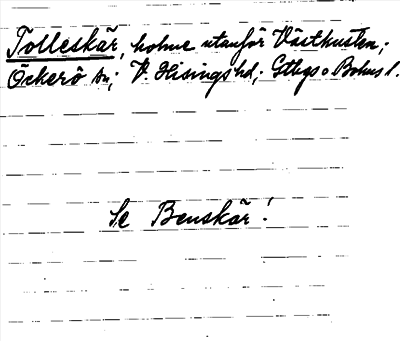 Tolleskär, holme utanför Västkusten;
Öckerö sn; V. Hisings hd; Gtbgs o Bohus l.
Se Benskär!